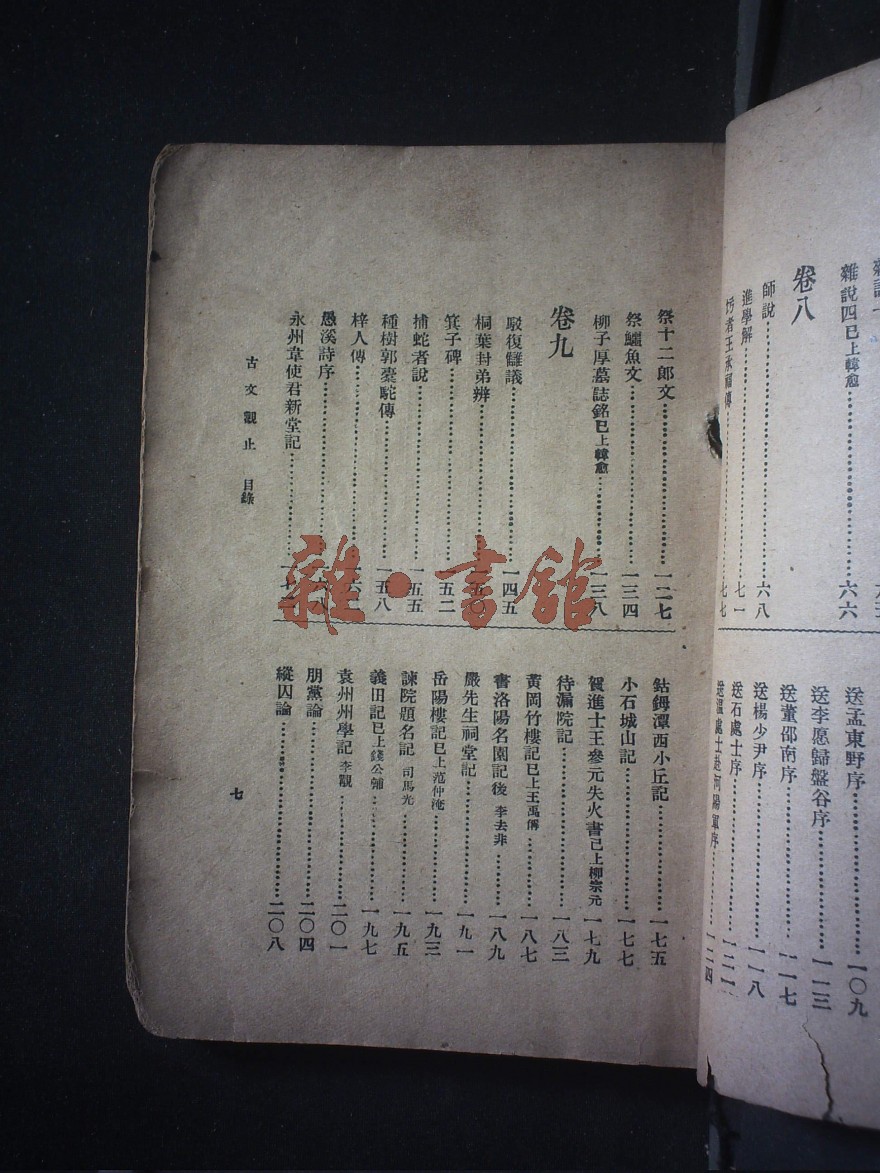 雜說四已上韓愈……六六
卷八
師說……六八
進學解……七一
圬者王承福傳……七七
送孟東野序……一〇九
送李愿歸盤谷序……一一三
送董邵南序……一一七
送楊少尹序……一一八
送石處士序……一二一
送溫處士赴河陽軍序……一二四
祭十二郎文……一二七
祭鱷魚文……一三四
柳子厚墓誌銘已上韓愈……一三八
卷九
駁復讎議……一四五
桐葉封弟辨……一五〇
箕子碑……一五二
捕蛇者說……一五五
種樹郭橐駝傳……一五八
梓人傳……一六二
愚溪詩序……
永州韋使君新堂記……
鈷鉧潭西小丘記……一七五
小石城山記……一七七
賀進士王參元失火書已上柳宗元……一七九
待漏院記……一八三
黃岡竹樓記已上王禹偁……一八七
書洛陽名園記後 李去非……一八九
嚴先生祠堂記……一九一
岳陽樓記已上范仲淹……一九三
諫院題名記 司馬光……一九五
義田記已上錢公輔……一九七
袁州州學記 李覯……二〇一
朋黨論……二〇四
縱囚論……二〇八
古文觀止 目錄
七
雜·書館